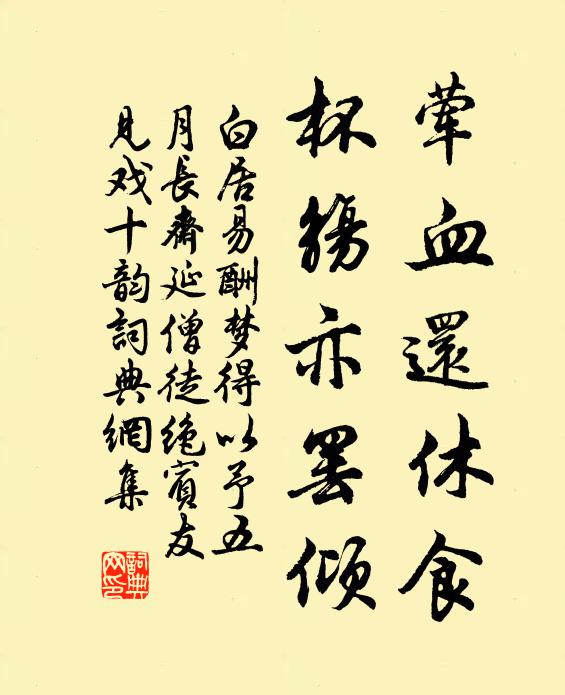 荤血還休食
杯觴亦罢傾
白居易酬梦得以予五
月長齋延僧徒绝賓友
見戏十韵詞典網集
詞典网印